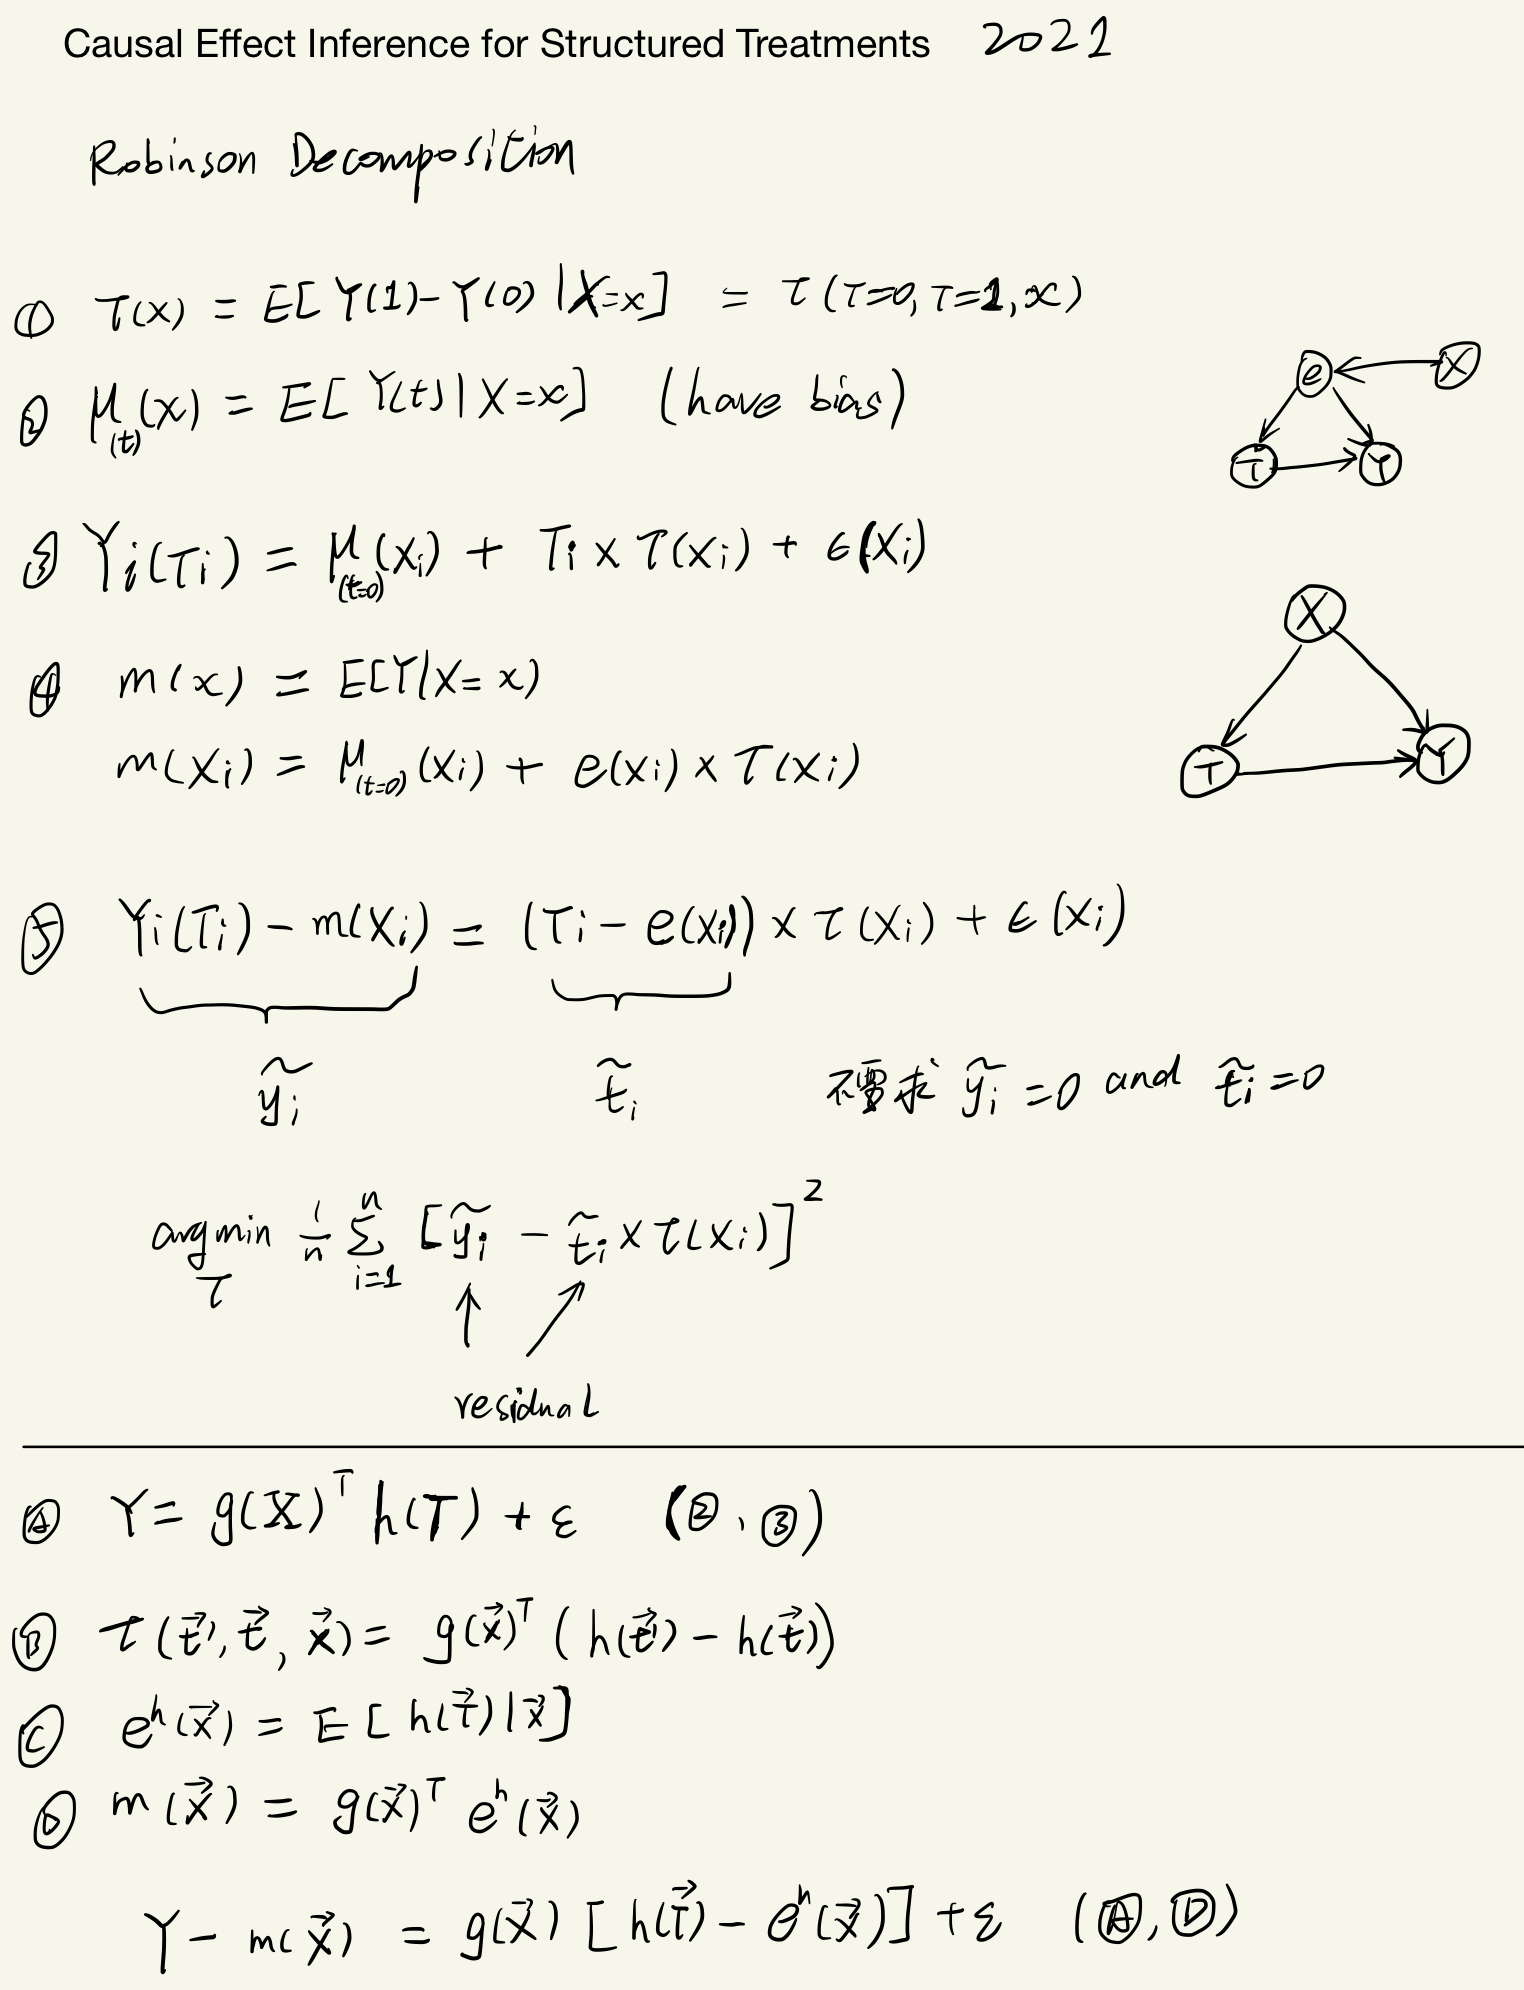 Causal Effect Inference for Structured Treatments 2021
Robinson Decomposition
① τ(x) = E[Y(1)-Y(0) |X=x] = τ(T=0, T=1, x)
② μ(t)(x) = E[Y(t)|X=x] (have bias)
e X
T Y
③ Yi(Ti) = μ(t=0)(Xi) + Ti × τ(Xi) + ε(Xi)
X
T Y
④ m(x) = E[Y|X=x)
m(Xi) = μ(t=0)(Xi) + e(Xi) × τ(Xi)
⑤ Yi(Ti) - m(Xi) = (Ti - e(Xi)) × τ(Xi) + ε(Xi)
ỹi t̃i 不要求 ỹi = 0 and t̃i = 0
argmin τ 1/n Σ i=1 n [ỹi - t̃i × τ(Xi)]²
residual
Ⓐ Y = g(X)ᵀ h(T) + ε (②、③)
Ⓑ τ(t⃗', t⃗, x⃗) = g(x⃗)ᵀ (h(t⃗') - h(t⃗))
Ⓒ eʰ(x⃗) = E[h(T⃗)|x⃗]
Ⓓ m(x⃗) = g(x⃗)ᵀ eʰ(x⃗)
Y - m(x⃗) = g(x⃗) [h(T⃗) - eʰ(x⃗)] + ε (Ⓐ, Ⓓ)